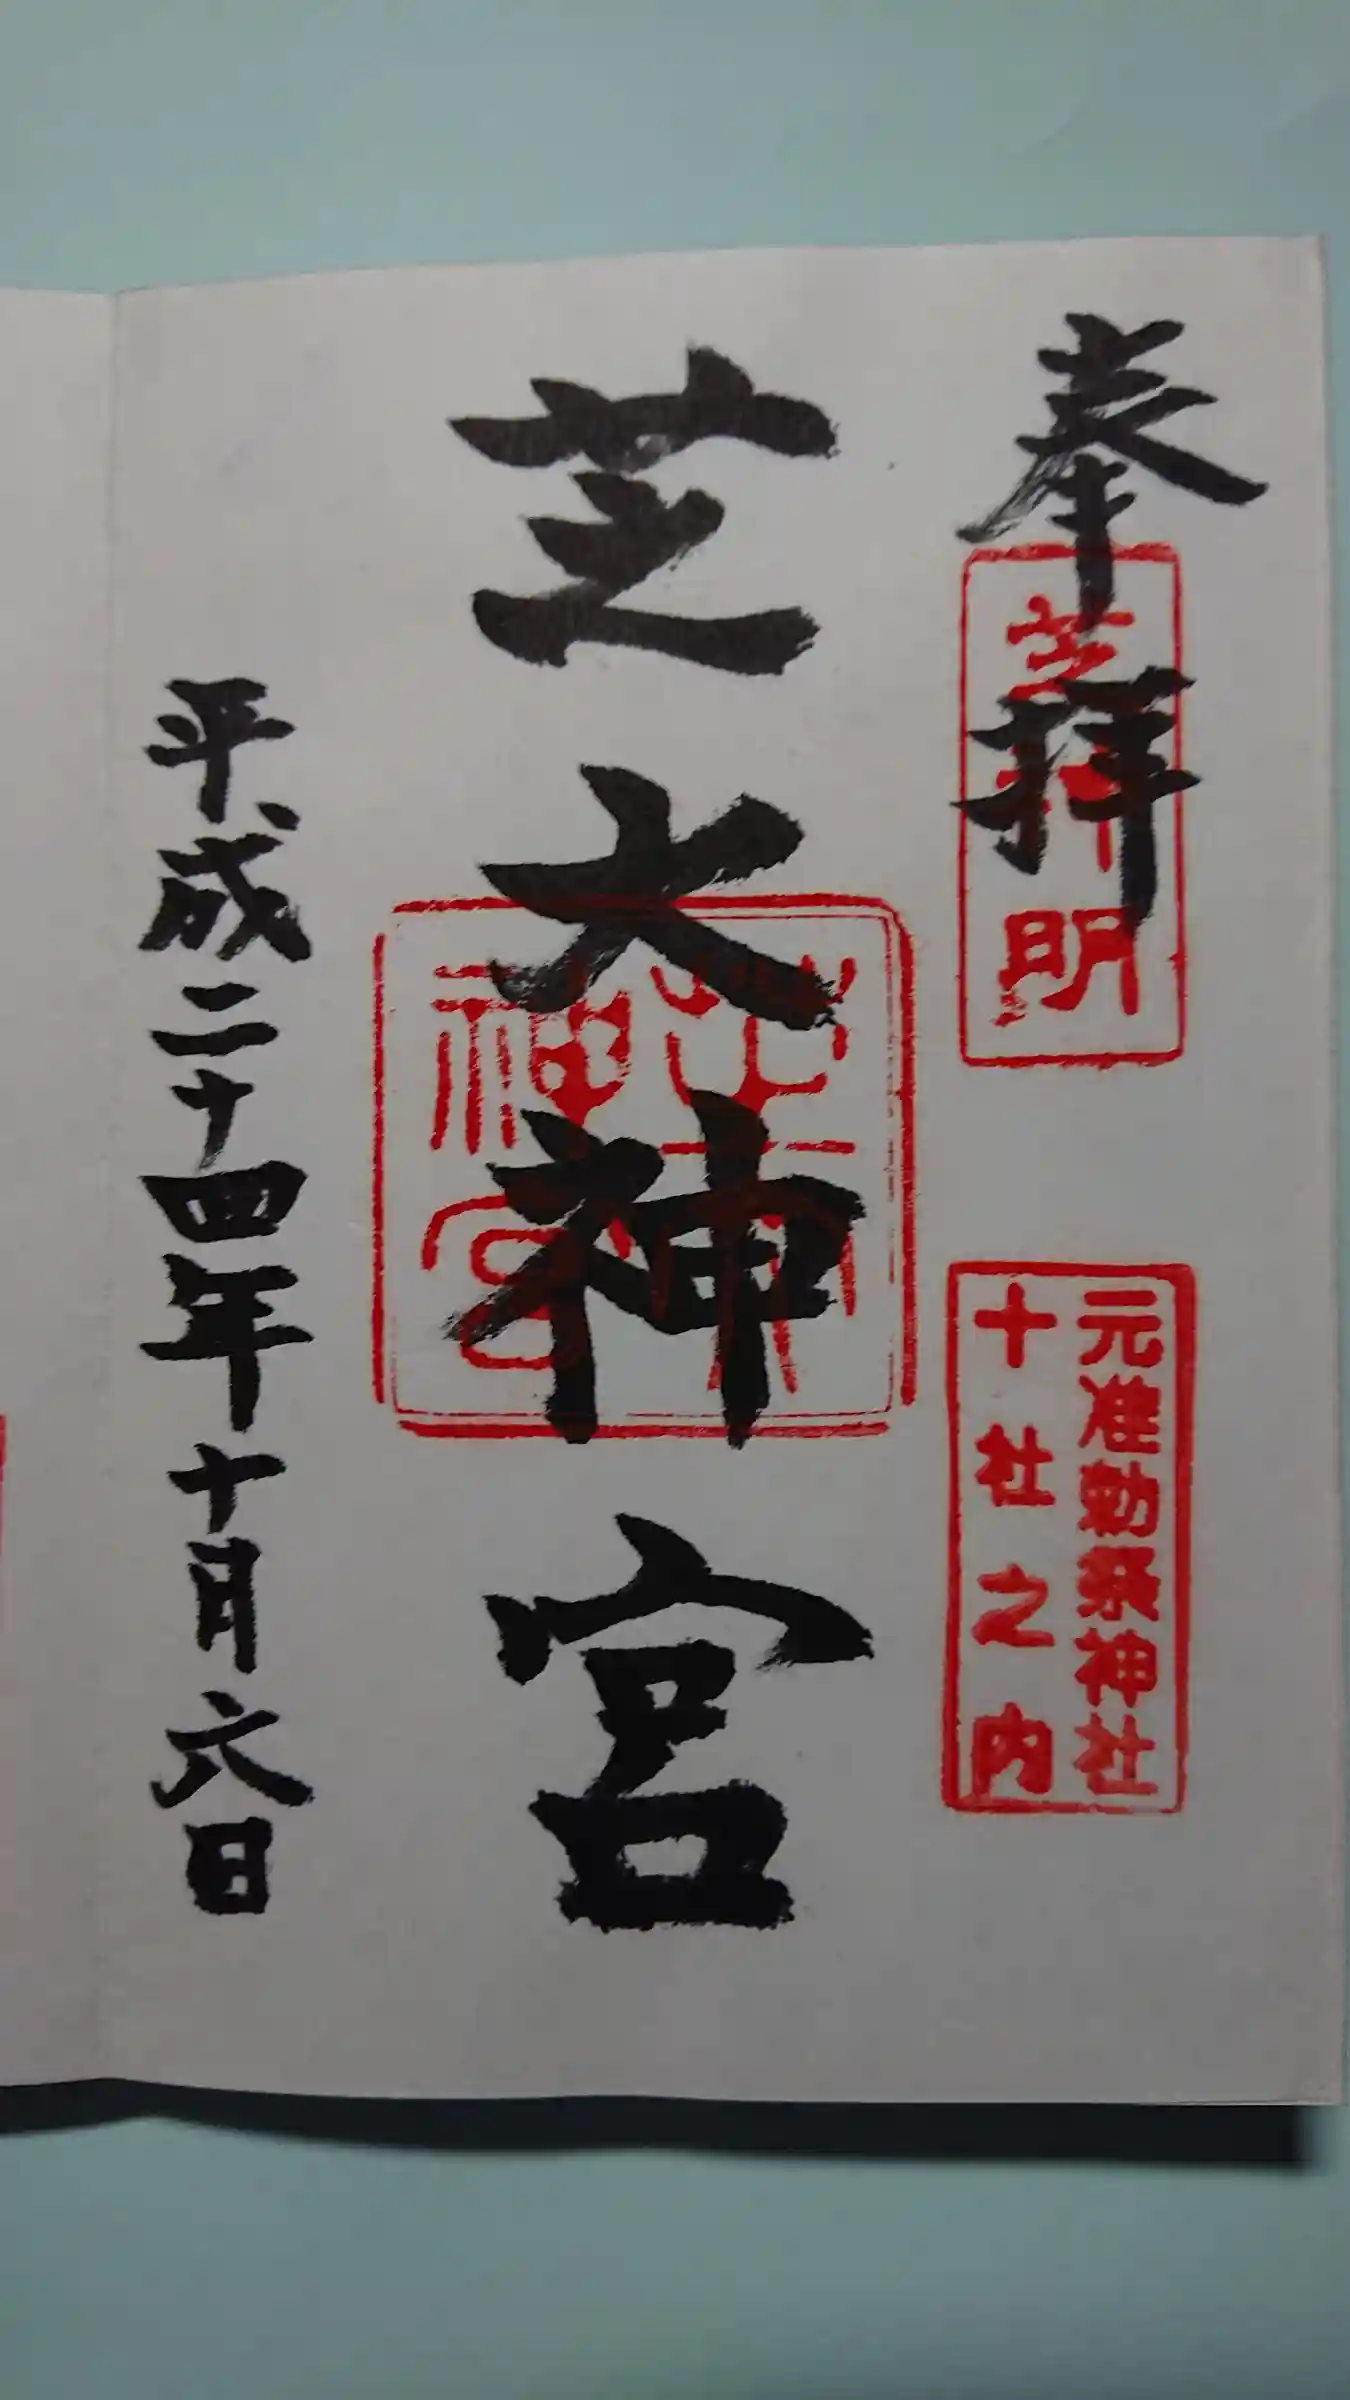 奉拝
芝神明
元准勅祭神社
十社之内
芝大神宮
芝大
神宮
平成二十四年十月六日